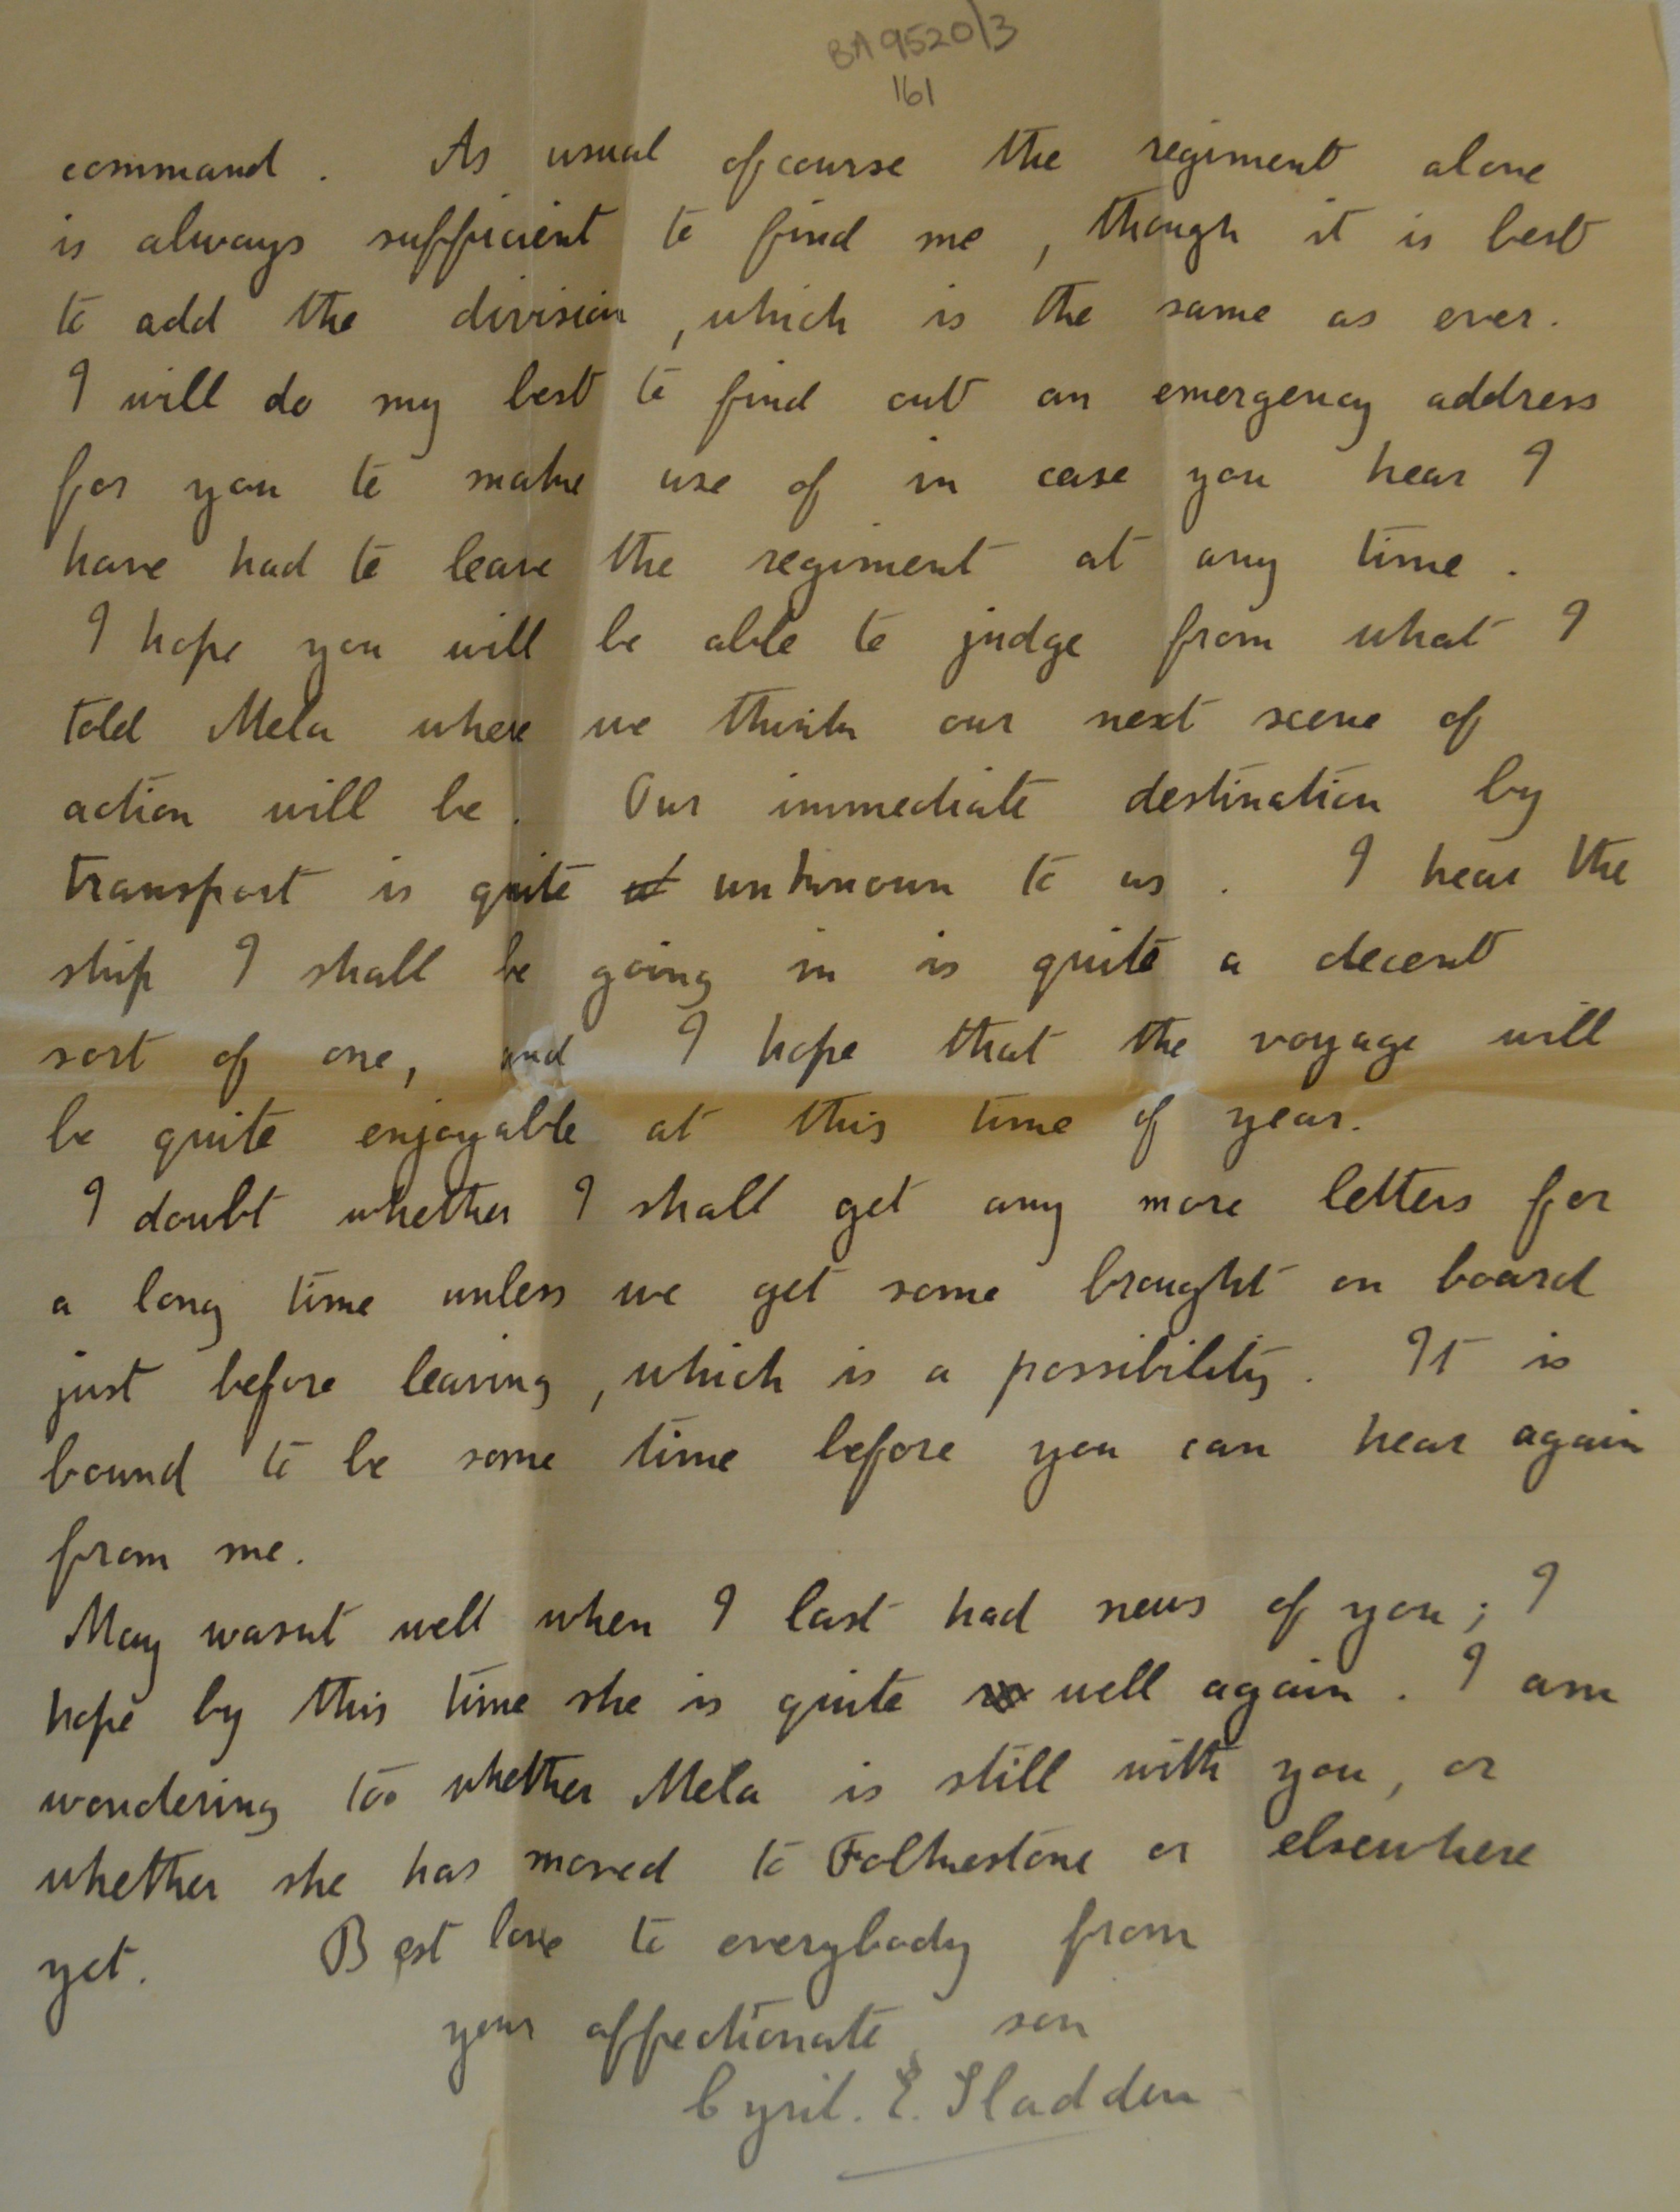 BA 9520/3
161
command. As usual ofcourse the regiment alone
is always sufficient to find me, though it is best
to add the division, which is the same as ever.
I will do my best to find out an emergency address
for you to make use of in case you hear I
have had to leave the regiment at any time.
I hope you will be able to judge from what I
told Mela where we think our next scene of
action will be. Our immediate destination by
transport is quite unknown to us. I hear the
ship I shall be going in is quite a decent
sort of one, and I hope that the voyage will
be quite enjoyable at this time of year.
I doubt whether I shall get any more letters for
a long time unless we get some brought on board
just before leaving, which is a possibility. It is
bound to be some time before you can hear again
from me.
May wasnt well when I last had news of you; I
hope by this time she is quite well again. I am
wondering too whether Mela is still with you, or
whether she has moved to Folkestone or elsewhere
yet. Best love to everybody from
your affectionate son
Cyril. E. Sladden